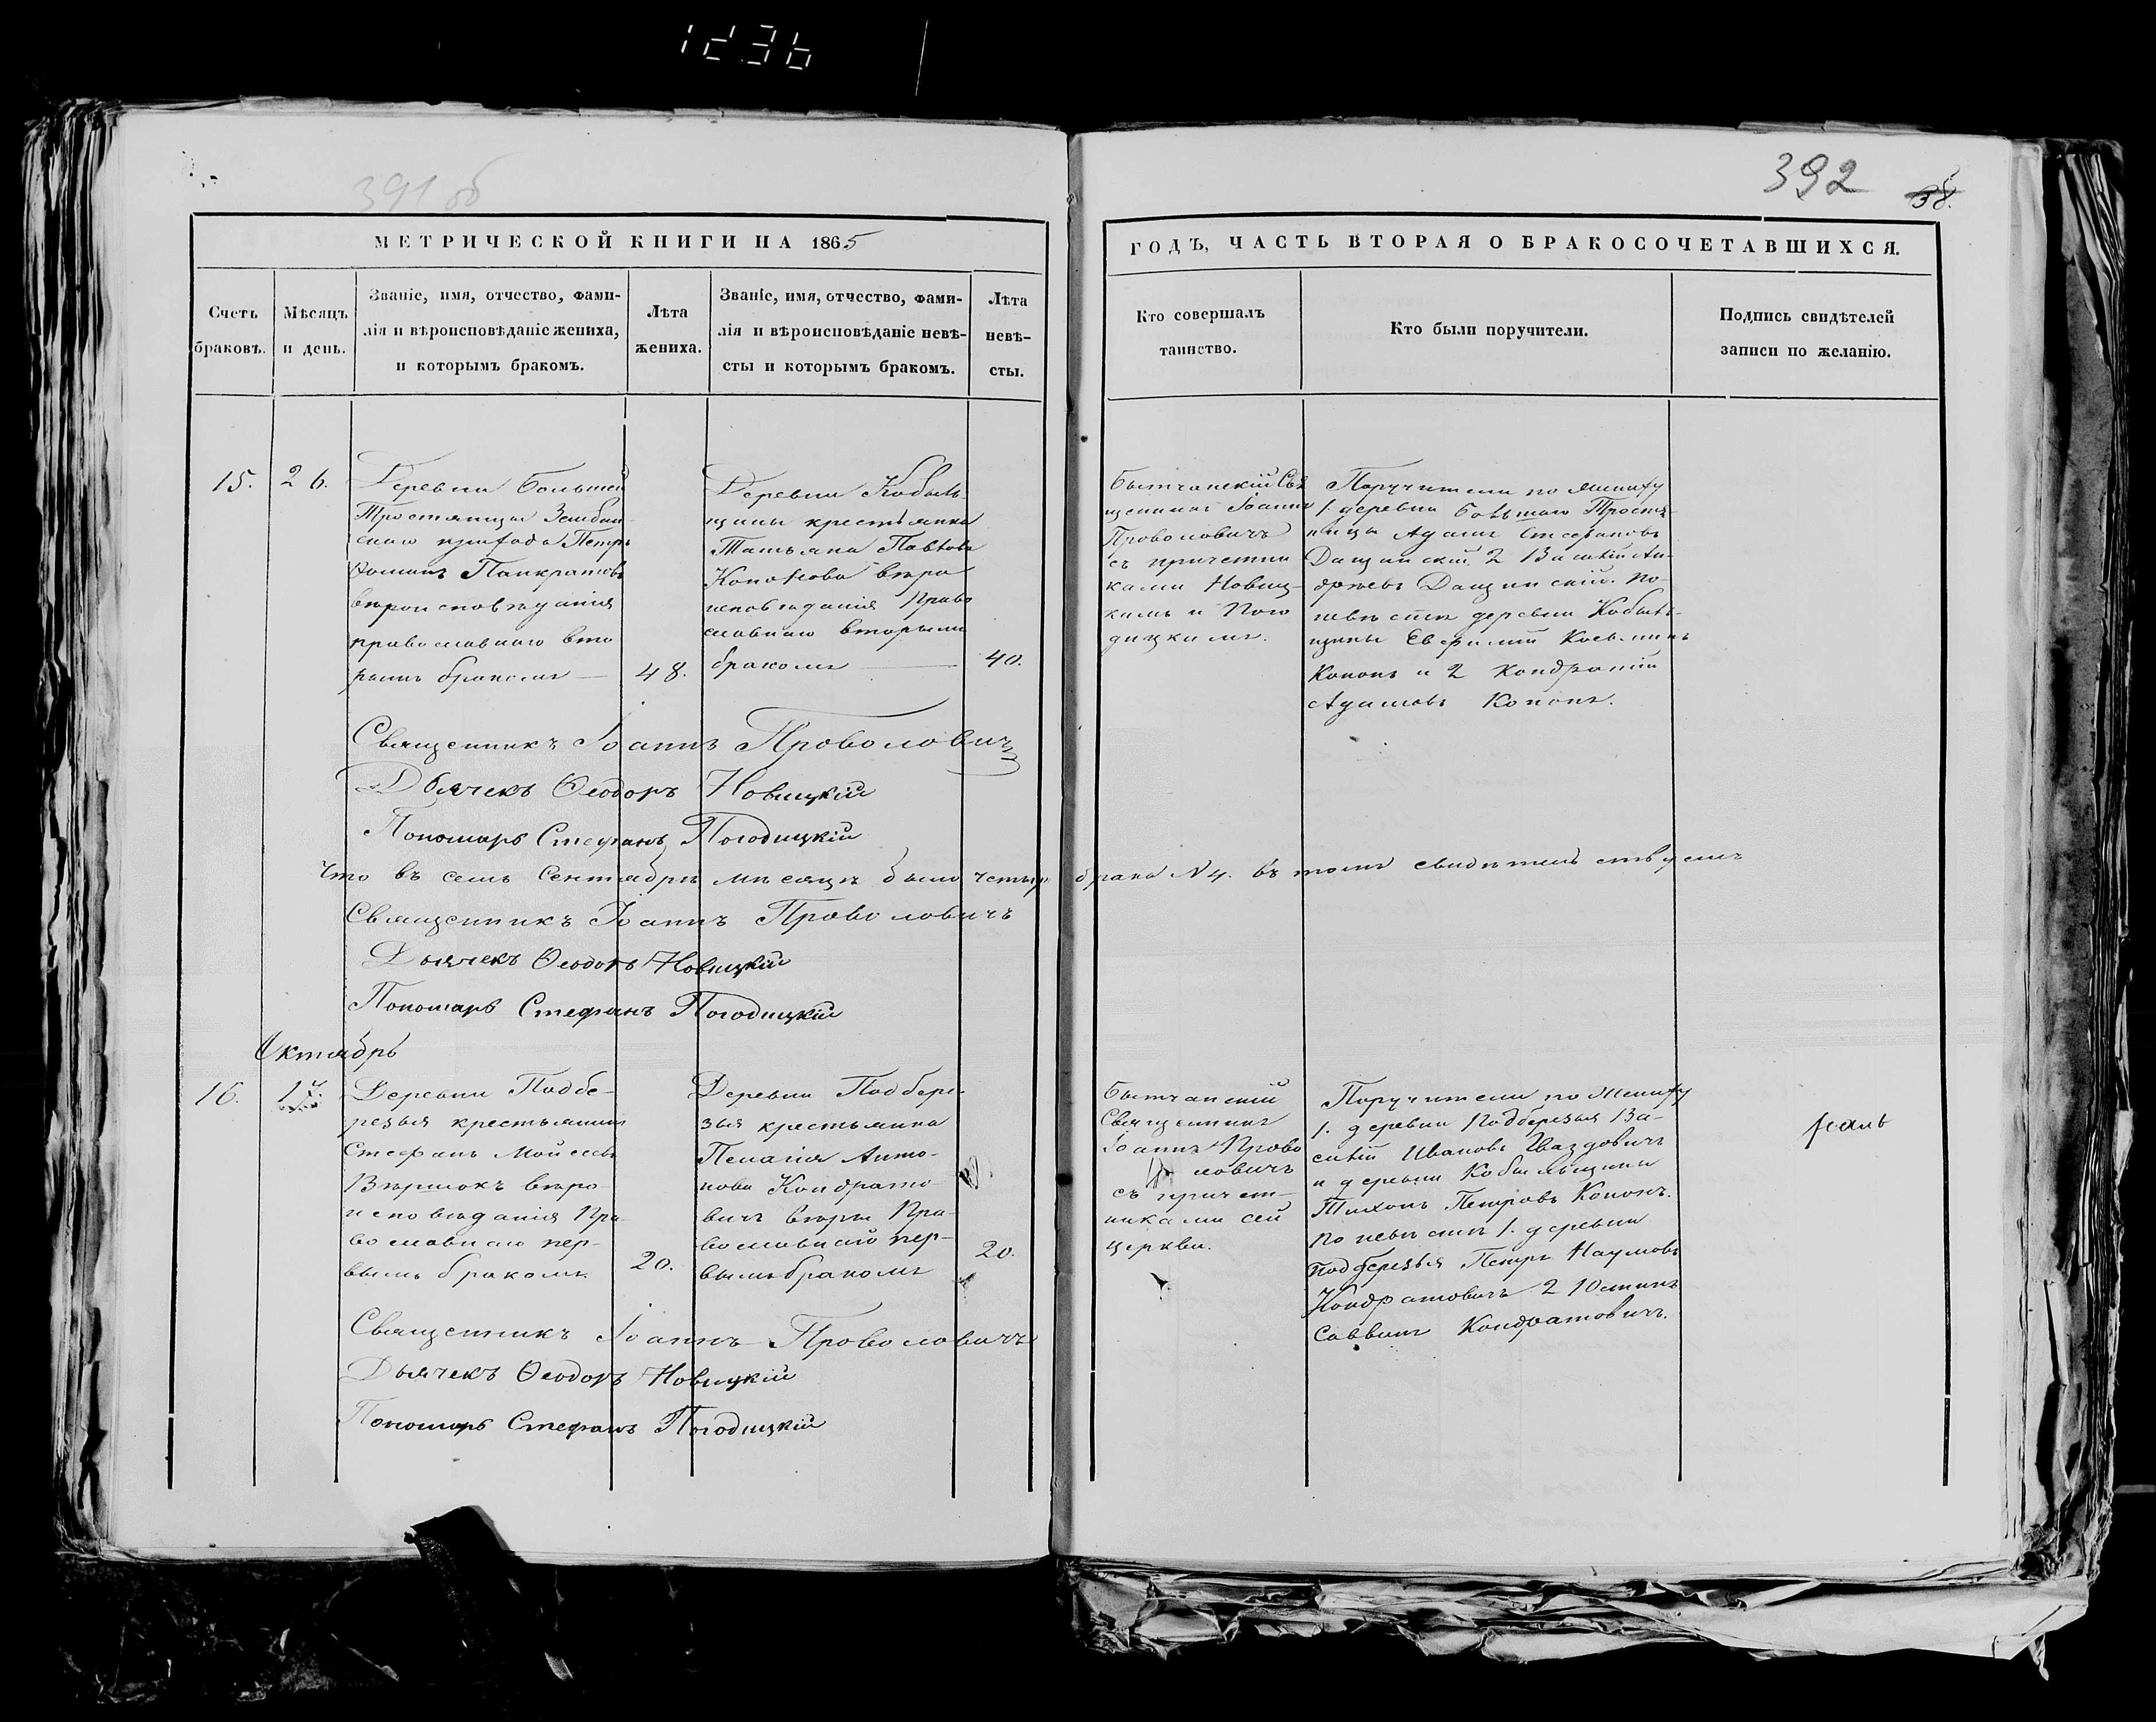 391 об
392
38.
МЕТРИЧЕСКОЙ КНИГИ НА 1865
ГОДЪ, ЧАСТЬ ВТОРАЯ О БРАКОСОЧЕТАВШИХСЯ.
Счетъ
браковъ.
Мѣсяцъ
и день.
Званіе, имя, отчество, фами-
лія и вѣроисповѣданіе жениха,
и которымъ бракомъ.
Лѣта
жениха.
Званіе, имя, отчество, фами-
лія и вѣроисповѣданіе невѣ-
сты и которымъ бракомъ.
Лѣта
невѣ-
сты.
Кто совершалъ
таинство.
Кто были поручители.
Подпись свидѣтелей
записи по желанію.
15.
26.
Деревни Большой
Тростяницы Зембин-
скаго прихода Петръ
Панкратовъ
вѣроисповѣданія
православнаго вто
рымъ бракомъ
48.
Деревни Кобыль-
щины крестьянка
Татьяна Павлова
Кононова вѣро
исповѣданія Право
славнаго вторымъ
бракомъ
40.
Бытчанскій Свя
щенникъ Іоаннъ
Проволовичъ
съ причетни
ками Новиц-
кимъ и Пого
дицкимъ.
Поручители по жениху
1. деревни Большаго Тростя-
ницы Адамъ Стефановъ
Дащинскій. 2 Василій Ан-
дреевъ Дащинскій. по
невѣстѣ деревни Кобыль-
щины Евфимій Косьминъ
Кононъ и 2 Кондратій
Адамовъ Кононъ.
Священникъ Іоаннъ Проволовичъ
Дьячекъ Ѳеодоръ Новицкій
Пономарь Стефанъ Погодицкій
Что въ семъ Сентябрѣ мѣсяцѣ было четыре брака N 4. въ томъ свидѣтельствуемъ
Священникъ Іоаннъ Проволовичъ
Дьячекъ Ѳеодоръ Новицкій
Пономарь Стефанъ Погодицкій
Октябрь
16.
17.
Деревни Подбе-
резья крестьянинъ
Стефанъ Мойсеевъ
Вѣршокъ вѣро
исповѣданія Пра-
вославнаго пер-
вымъ бракомъ
20.
Деревни Подбере-
зья крестьянка
Пелагія Анто-
нова Кондрато-
вичъ вѣры Пра-
вославной пер-
вымъ бракомъ
20.
Бытчанскій
Священникъ
Іоаннъ Прово
ловичъ
съ причет-
никами сей
церкви.
Поручители по жениху
1. деревни Подберезья Ва-
силій Ивановъ Гваздовичъ
и деревни Кобыльщины
Тихонъ Петровъ Кононъ.
по невѣстѣ 1. деревни
Подберезья Петръ Наумовъ
Кондратовичъ 2 Юстинъ
Саввинъ Кондратовичъ.
Священникъ Іоаннъ Проволовичъ
Дьячекъ Ѳеодоръ Новицкій
Пономарь Стефанъ Погодицкій